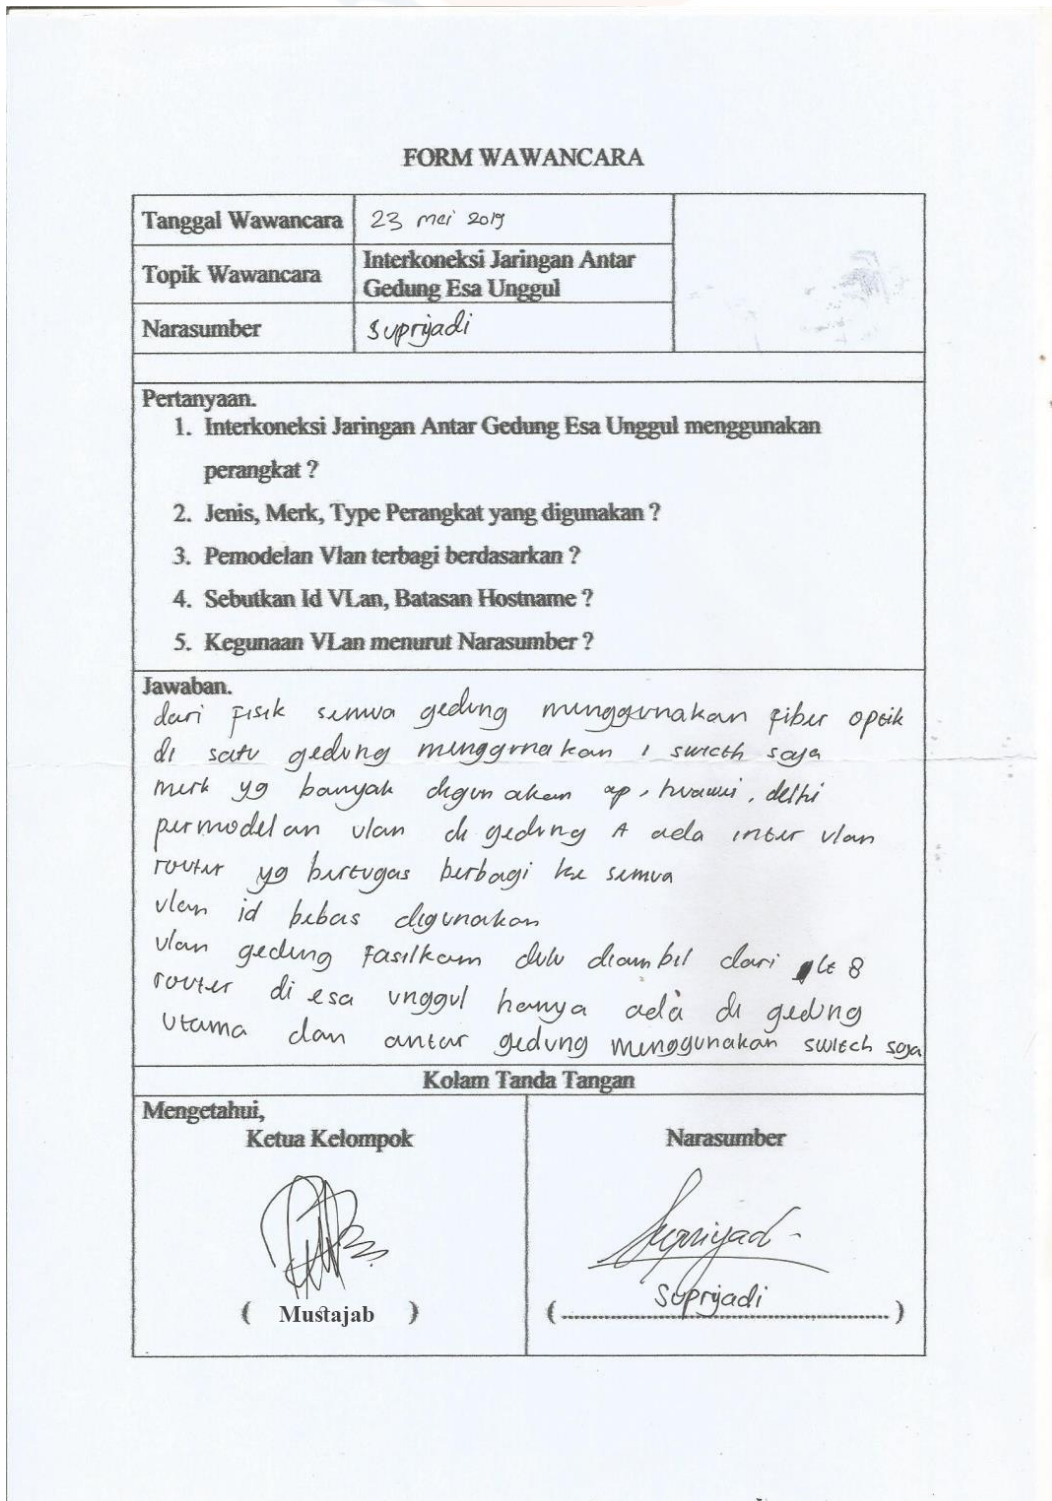 FORM WAWANCARA
Tanggal Wawancara 23 mei 2019
Topik Wawancara Interkoneksi Jaringan Antar
Gedung Esa Unggul
Narasumber Suprijadi
Pertanyaan.
1. Interkoneksi Jaringan Antar Gedung Esa Unggul menggunakan
perangkat ?
2. Jenis, Merk, Type Perangkat yang digunakan ?
3. Pemodelan Vlan terbagi berdasarkan ?
4. Sebutkan Id VLan, Batasan Hostname ?
5. Kegunaan VLan menurut Narasumber ?
Jawaban.
dari fisik semua gedung menggunakan fiber optik
di satu gedung menggunakan 1 swicth saja
merk yg banyak digunakan
permodelan vlan di gedung A ada inter vlan
router yg bertugas berbagi ke semua
vlan id bebas digunakan
vlan gedung Fasilkom dulu diambil dari lt 8
router di esa unggul hanya ada di gedung
utama dan antar gedung menggunakan switch saja
Kolam Tanda Tangan
Mengetahui,
Ketua Kelompok
Narasumber
Supriyadi
( Mustajab )
( Suprijadi )